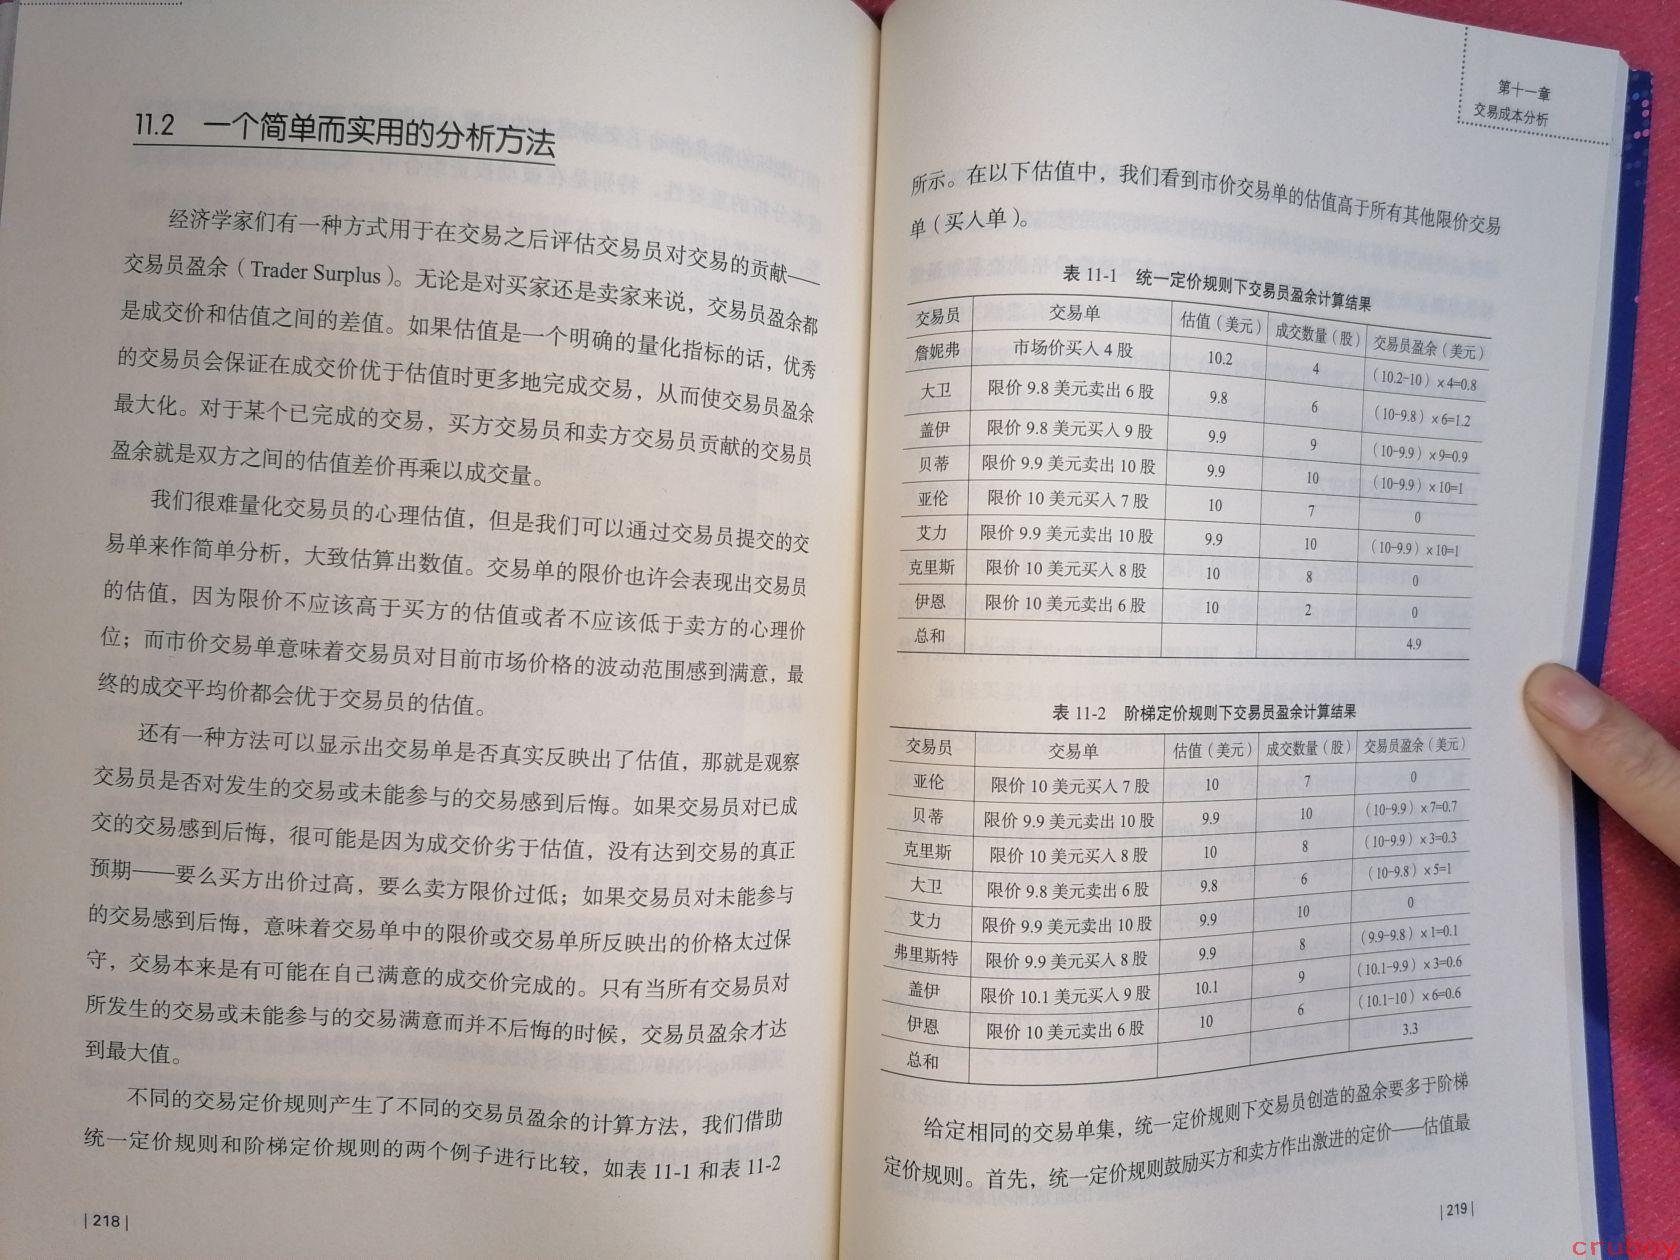 11.2 一个简单而实用的分析方法
经济学家们有一种方式用于在交易之后评估交易员对交易的贡献——
交易员盈余（Trader Surplus）。无论是对买家还是卖家来说，交易员盈余都
是成交价和估值之间的差值。如果估值是一个明确的量化指标的话，优秀
的交易员会保证在成交价优于估值时更多地完成交易，从而使交易员盈余
最大化。对于某个已完成的交易，买方交易员和卖方交易员贡献的交易员
盈余就是双方之间的估值差价再乘以成交量。
我们很难量化交易员的心理估值，但是我们可以通过交易员提交的交
易单来作简单分析，大致估算出数值。交易单的限价也许会表现出交易员
的估值，因为限价不应该高于买方的估值或者不应该低于卖方的心理价
位；而市价交易单意味着交易员对目前市场价格的波动范围感到满意，最
终的成交平均价都会优于交易员的估值。
还有一种方法可以显示出交易单是否真实反映出了估值，那就是观察
交易员是否对发生的交易或未能参与的交易感到后悔。如果交易员对已成
交的交易感到后悔，很可能是因为成交价劣于估值，没有达到交易的真正
预期——要么买方出价过高，要么卖方限价过低；如果交易员对未能参与
的交易感到后悔，意味着交易单中的限价或交易单所反映出的价格太过保
守，交易本来是有可能在自己满意的成交价完成的。只有当所有交易员对
所发生的交易或未能参与的交易满意而并不后悔的时候，交易员盈余才达
到最大值。
不同的交易定价规则产生了不同的交易员盈余的计算方法，我们借助
统一定价规则和阶梯定价规则的两个例子进行比较，如表 11-1 和表 11-2
| 218 |
第十一章
交易成本分析
所示。在以下估值中，我们看到市价交易单的估值高于所有其他限价交易
单（买入单）。
表 11-1 统一定价规则下交易员盈余计算结果
交易员 交易单 估值（美元） 成交数量（股） 交易员盈余（美元）
詹妮弗 市场价买入 4 股 10.2 4 （10.2-10）×4=0.8
大卫 限价 9.8 美元卖出 6 股 9.8 6 （10-9.8）×6=1.2
盖伊 限价 9.8 美元买入 9 股 9.9 9 （10-9.9）×9=0.9
贝蒂 限价 9.9 美元卖出 10 股 9.9 10 （10-9.9）×10=1
亚伦 限价 10 美元买入 7 股 10 7 0
艾力 限价 9.9 美元卖出 10 股 9.9 10 （10-9.9）×10=1
克里斯 限价 10 美元买入 8 股 10 8 0
伊恩 限价 10 美元卖出 6 股 10 2 0
总和 4.9
表 11-2 阶梯定价规则下交易员盈余计算结果
交易员 交易单 估值（美元） 成交数量（股） 交易员盈余（美元）
亚伦 限价 10 美元买入 7 股 10 7 0
贝蒂 限价 9.9 美元卖出 10 股 9.9 10 （10-9.9）×7=0.7
克里斯 限价 10 美元买入 8 股 10 8 （10-9.9）×3=0.3
大卫 限价 9.8 美元卖出 6 股 9.8 6 （10-9.8）×5=1
艾力 限价 9.9 美元卖出 10 股 9.9 10 0
弗里斯特 限价 9.9 美元买入 8 股 9.9 8 （9.9-9.8）×1=0.1
盖伊 限价 10.1 美元买入 9 股 10.1 9 （10.1-9.9）×3=0.6
伊恩 限价 10 美元卖出 6 股 10 6 （10.1-10）×6=0.6
总和 3.3
给定相同的交易单集，统一定价规则下交易员创造的盈余要多于阶梯
定价规则。首先，统一定价规则鼓励买方和卖方作出激进的定价——估值最
| 219 |